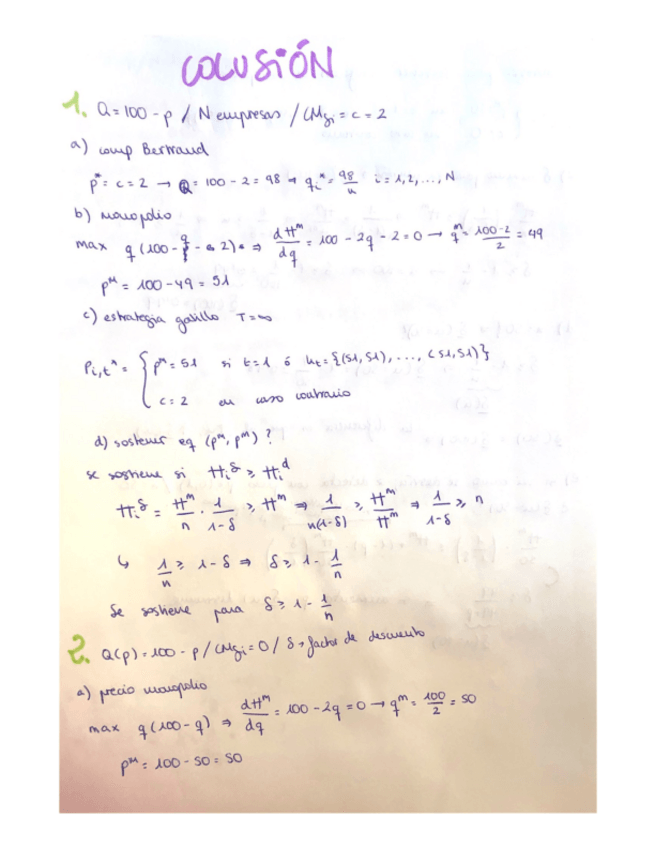 COLUSIÓN
1. Q = 100 - p / N empresas / CMgi = c = 2
a) comp Bertrand
p* = c = 2 → Q = 100 - 2 = 98 → qi* = 98/n i = 1, 2, ..., N
b) Monopolio
max q (100 - q - 2) ⇒ dπᵐ/dq = 100 - 2q - 2 = 0 → qᵐ = (100-2)/2 = 49
pᴹ = 100 - 49 = 51
c) estrategia gatillo T = ∞
Pi,t* = { pᵐ = 51 si t = 1 ó ht = {(51, 51), ..., (51, 51)}
c = 2 en caso contrario
d) sostener eq (pᵐ, pᵐ) ?
se sostiene si πi^δ ≥ πi^d
πi^δ = πᵐ/n · 1/(1-δ) ≥ πᵐ ⇒ 1/(n(1-δ)) ≥ πᵐ/πᵐ ⇒ 1/(1-δ) ≥ n
↳ 1/n ≥ 1 - δ ⇒ δ ≥ 1 - 1/n
Se sostiene para δ ≥ 1 - 1/n
2. Q(p) = 100 - p / CMgi = 0 / δ → factor de descuento
a) precio monopolio
max q (100 - q) ⇒ dπᵐ/dq = 100 - 2q = 0 → qᵐ = 100/2 = 50
pᴹ = 100 - 50 = 50